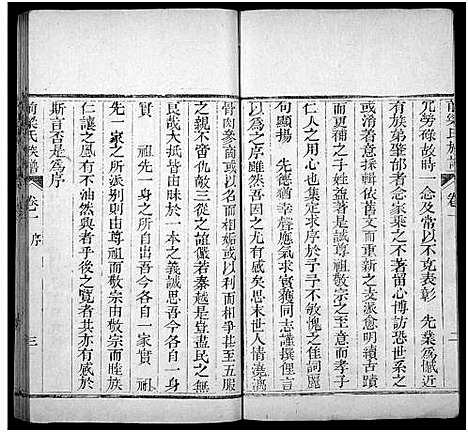 前梁氏族譜 卷一 二
冗勞碌故時一念及常以不克表彰 先業爲憾近
有族弟肇郁者念家乘之不可忘也博訪恐世系之
或淆補遺而重新之支派愈明續古蹟
而更補之子子是誠尊祖敬宗之意而無愧乎孝子
仁人之用心也求序於予予不敏愧乏佳詞麗
句顯揚 先德猶幸聲應氣求實獲同志謹撰俚言
以爲之序雖然吾因之尤有感矣思末世人情澆漓
骨肉參商或以面相妬或以利相爭甚至五服
之親亦有仇敵之從之誼邈若秦越是豈盡民之無
良哉大抵皆由昧於一本之義誠思吾今各自一身
實 祖先一身之所自出吾今各自一家實 祖
先一家之所派别則由尊祖而敬宗由敬宗而睦族
仁讓之風有不油然興者乎後之覽者其亦有感於
斯言否是爲序
前梁氏族譜 卷一 序 三